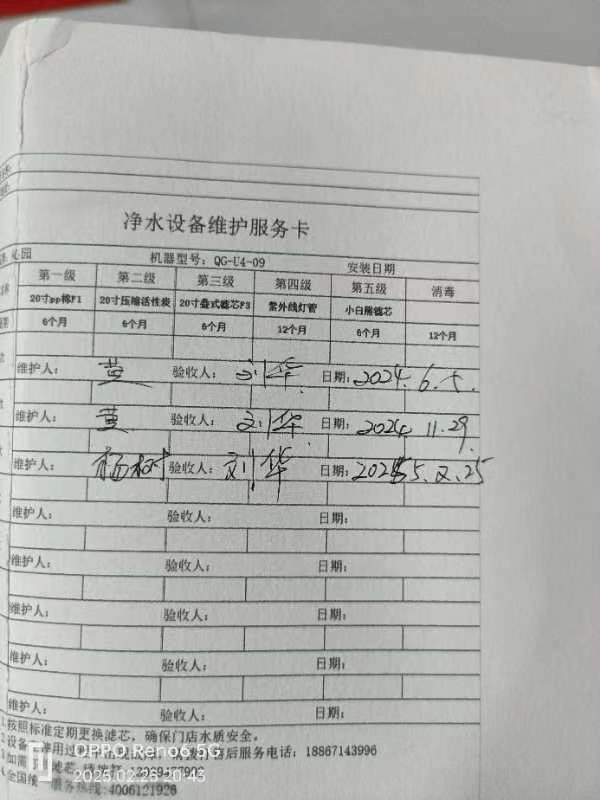 净水设备维护服务卡
心园 机器型号：QG-U4-09 安装日期
第一级 第二级 第三级 第四级 第五级 消毒
20寸pp棉F1 20寸压缩活性炭 20寸叠式滤芯F3 紫外线灯管 小白熊滤芯
6个月 6个月 6个月 12个月 6个月 12个月
维护人： 黄 验收人： 刘华 日期：2024.6.5.
维护人： 黄 验收人： 刘华 日期：2024.11.29.
维护人： 杨树 验收人： 刘华 日期：2025.2.25
维护人： 验收人： 日期：
维护人： 验收人： 日期：
维护人： 验收人： 日期：
维护人： 验收人： 日期：
维护人： 验收人： 日期：
1.按照标准定期更换滤芯，确保门店水质安全。
2.设备使用过程中出现故障，请拨打售后服务电话：18867143996
3.如需 滤芯
4.全国统一服务热线：4006121926
OPPO Reno6 5G
2025.02.25 20:43